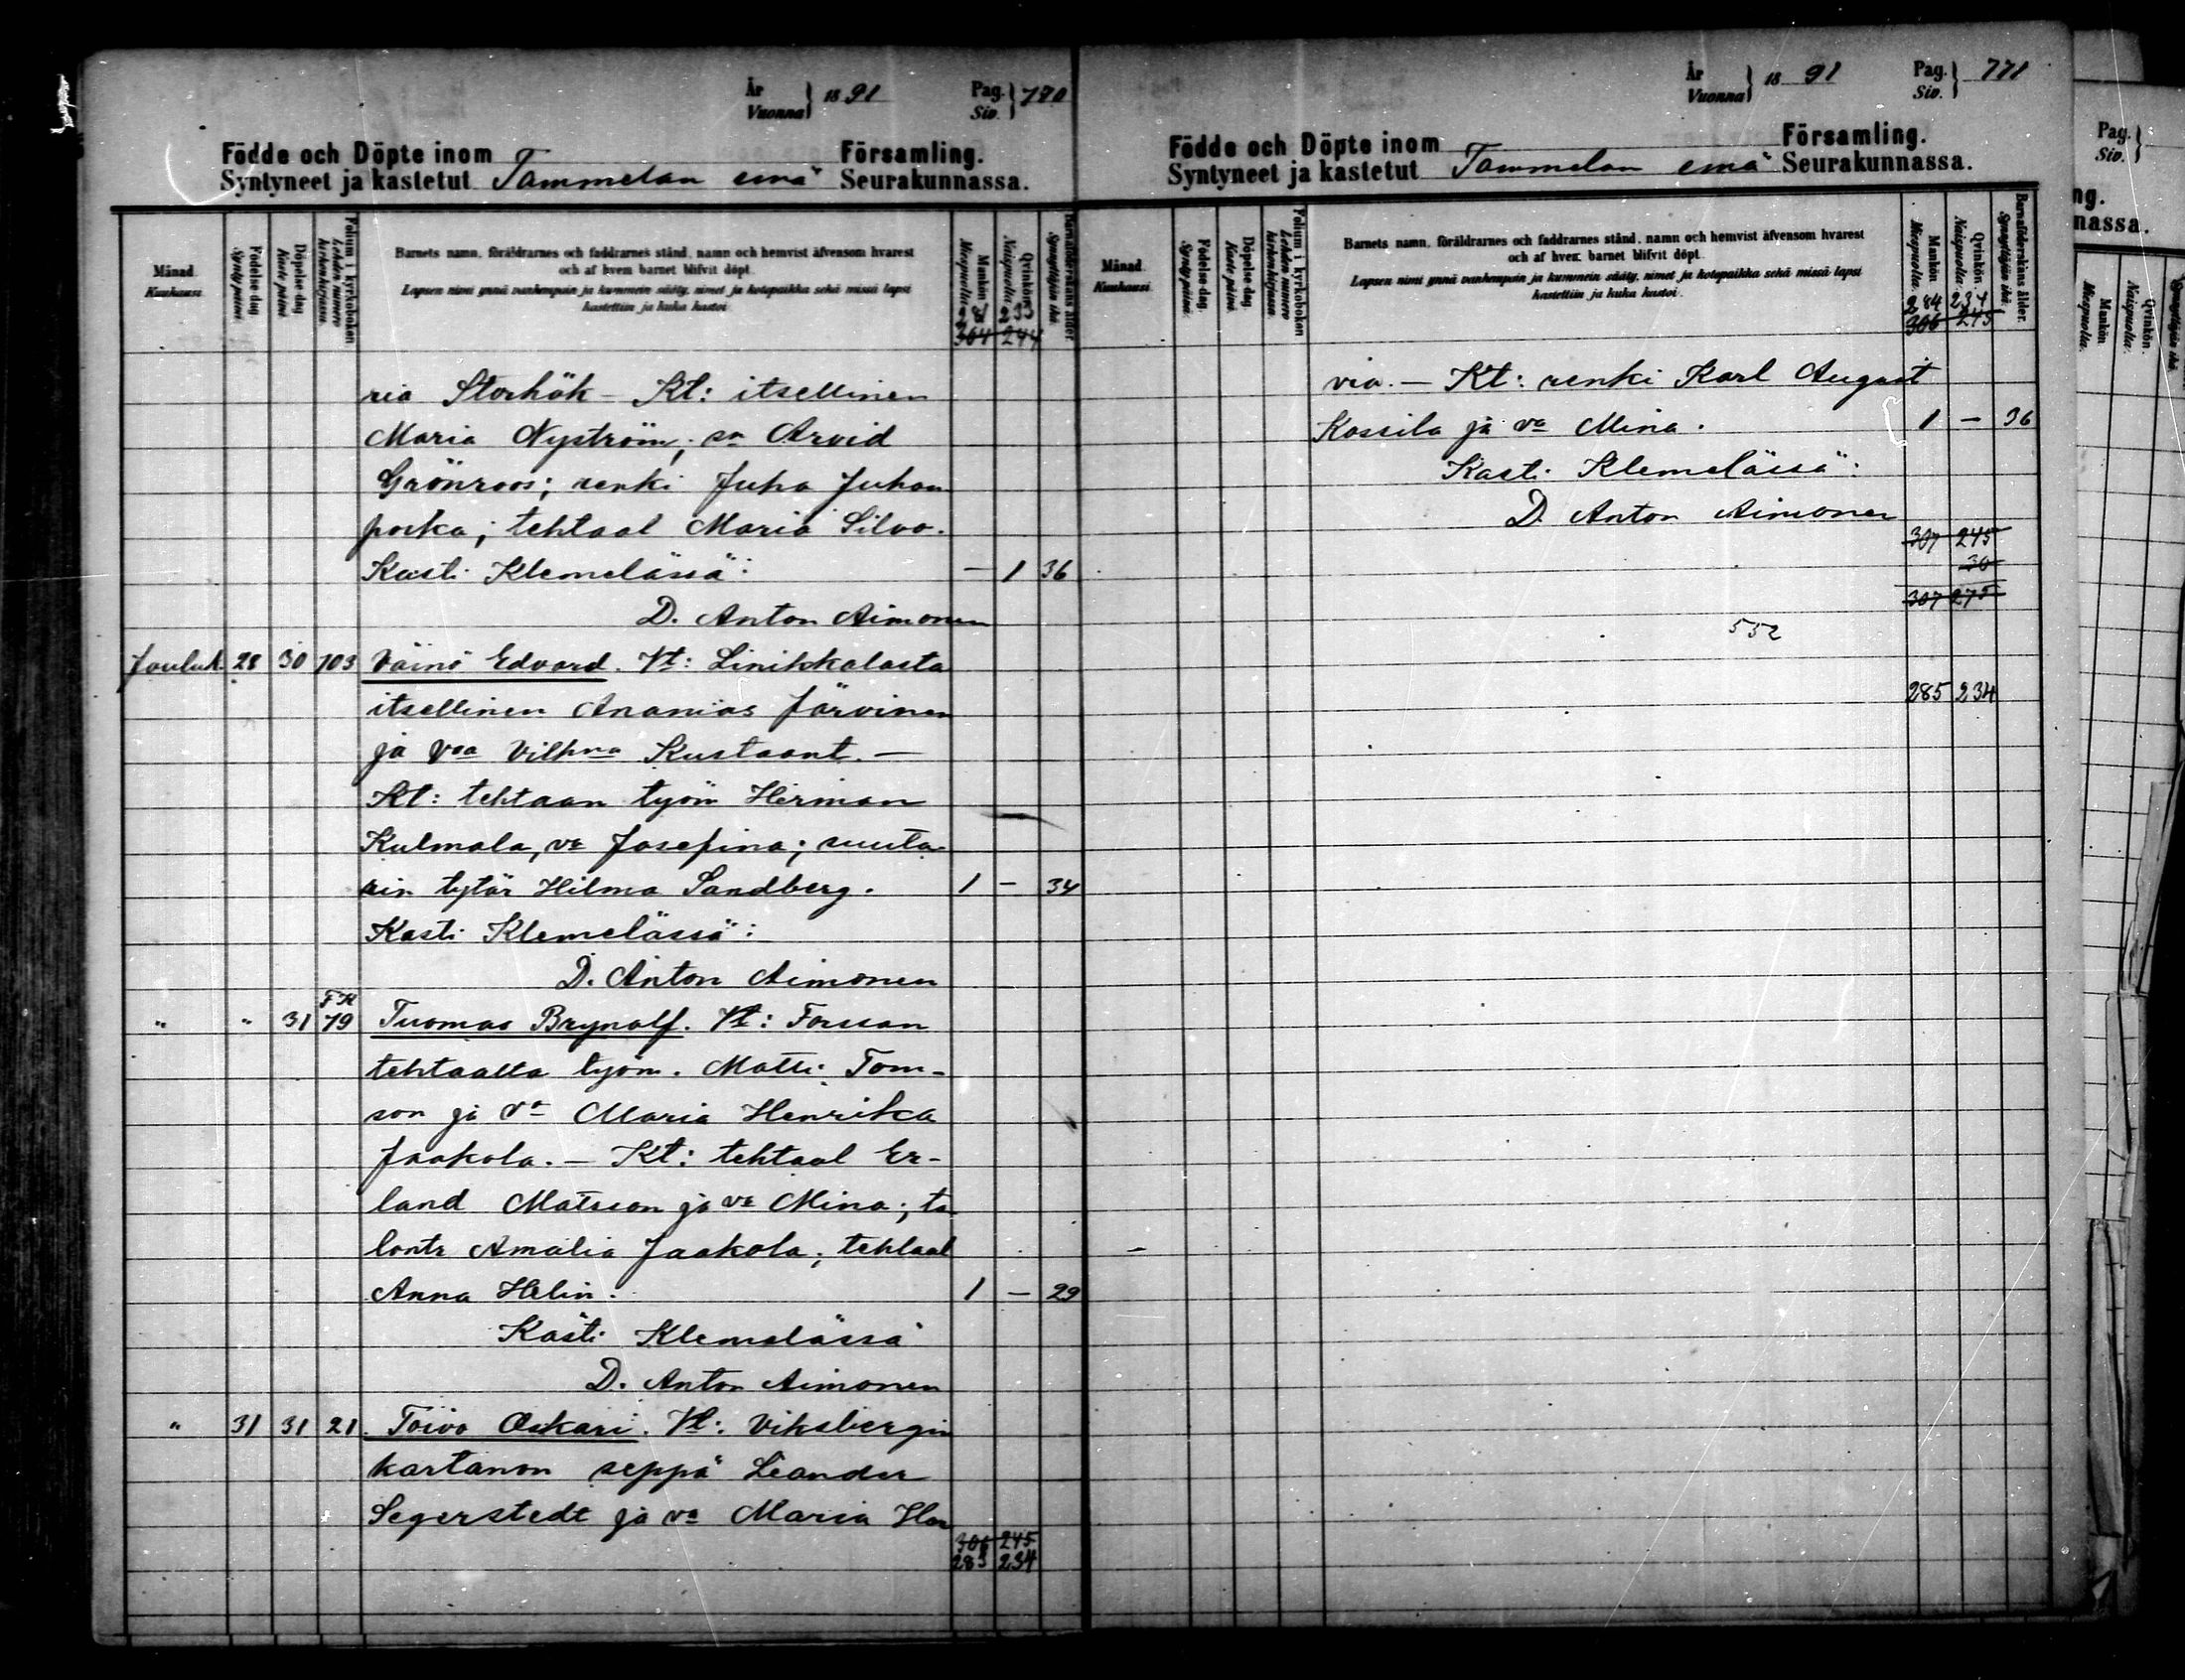 År
Vuonna } 18 91 Pag.
Siv. } 770
Födde och Döpte inom Församling.
Syntyneet ja kastetut Tammelan emä Seurakunnassa.
Månad.
Kuukausi.
Födelse dag
Synty päivä.
Döpelse dag
Kaste päivä
Folium i kyrkoboken
Lehden numero
kirkonkirjassa
Barnets namn, föräldrarnes och faddrarnes stånd, namn och hemvist äfvensom hvarest
och af hvem barnet blifvit döpt.
Lapsen nimi ynnä vanhempain ja kummein sääty, nimet ja kotopaikka sekä missä lapsi
kastettiin ja kuka kastoi.
Mankön
Miespuolia.
Qvinkön.
Naispuolia.
Barnaföderskans ålder
Synnyttäjän ikä.
281 233
304 244
ria Storhök – Kt: itsellinen
Maria Nyström; sn Arvid
Grönroos; renki Juha Juhan
poika; tehtaal Maria Silvo.
Kasti Klemelässä: – 1 36
D. Anton Aimonen
Jouluk. 28 30 103 Väinö Edvard. Vt: Linikkalasta
itsellinen Ananias Järvinen
ja Vaa Vilhna Kustaant. –
Kt: tehtaan työm Herman
Kulmala, va Josefina; suuta-
rin tytär Hilma Sandberg. 1 – 34
Kasti Klemelässä:
D. Anton Aimonen
" " 31 FK 79 Tuomas Brynolf. Vt: Forssan
tehtaalta työm. Matti Tom-
son ja va Maria Henrika
Jaakola. – Kt: tehtaal Er-
land Matsson ja va Mina; ta
lontr Amalia Jaakola; tehtaal
Anna Helin. 1 – 29
Kasti Klemelässä
D. Anton Aimonen
" 31 31 21 Toivo Oskari. Vt: Viksbergin
kartanon seppä Leander
Segerstedt ja va Maria Hen
306 245
285 234
År
Vuonna } 18 91 Pag.
Siv. } 771
Födde och Döpte inom Församling.
Syntyneet ja kastetut Tammelan emä Seurakunnassa.
Månad.
Kuukausi.
Födelse-dag.
Synty päivä.
Döpelse-dag.
Kaste päivä.
Folium i kyrkoboken
Lehden numero
kirkonkirjassa.
Barnets namn, föräldrarnes och faddrarnes stånd, namn och hemvist äfvensom hvarest
och af hvem barnet blifvit döpt.
Lapsen nimi ynnä vanhempain ja kummein sääty, nimet ja kotopaikka sekä missä lapsi
kastettiin ja kuka kastoi.
Mankön
Miespuolia.
Qvinkön.
Naispuolia.
Barnaföderskans ålder.
Synnyttäjän ikä.
284 234
306 245
ria. – Kt: renki Karl August
Kassila ja va Mina. 1 – 36
Kasti Klemelässä:
D. Anton Aimonen
307 245
30
307 275
552
285 234
Pag.
Siv. }
ng.
nassa.
Mankön
Miespuolia.
Qvinkön.
Naispuolia.
Synnyttäjän ikä